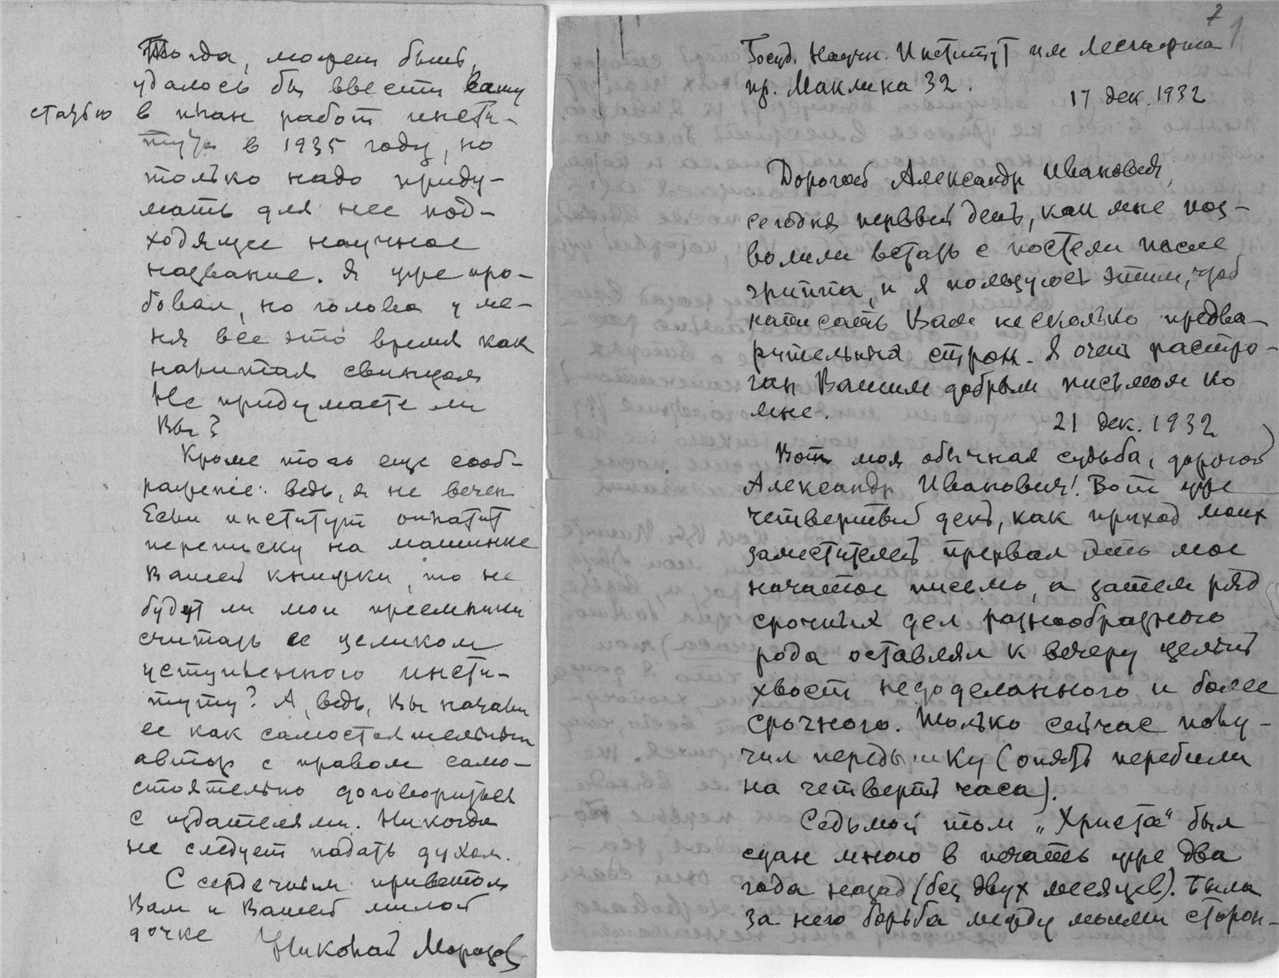 Тогда, может быть,
удалось бы ввести вашу
статью в план работ инсти-
тута в 1935 году, но
только надо приду-
мать для нее под-
ходящее научное
название. Я уже про-
бовал, но голова у ме-
ня все это время как
налитая свинцом
Не придумаете ли
Вы?
Кроме того еще сооб-
ражение: ведь, я не вечен
Если институт оплатит
переписку на машинке
Вашей книжки, то не
будут ли мои преемники
считать ее целиком
уступленного инсти-
туту? А, ведь, Вы начали
ее как самостоятельный
автор с правом само-
стоятельно договориться
с издателями. Никогда
не следует падать духом.
С сердечным приветом
Вам и Вашей милой
дочке
Николай Морозов
7
1
Госуд. Научн. Институт им Лесгафта
пр. Маклина 32.
17 дек. 1932
Дорогой Александр Иванович,
сегодня первый день, как мне поз-
волили встать с постели после
гриппа, и я пользуюсь этим, чтоб
написать Вам несколько предва-
рительных строк. Я очень растро-
ган Вашим добрым письмом ко
мне.
21 дек. 1932
Вот моя обычная судьба, дорогой
Александр Иванович! Вот уже
четвертый день, как приход моих
заместителей прервал это мое
начатое письмо, а затем ряд
срочных дел разнообразного
рода оставлял к вечеру целый
хвост недоделанного и более
срочного. Только сейчас полу-
чил передышку (опять перебили
на четверть часа).
Седьмой том „Христа" был
сдан мною в печать уже два
года назад (без двух месяцев). Была
за него борьба между моими сторон-